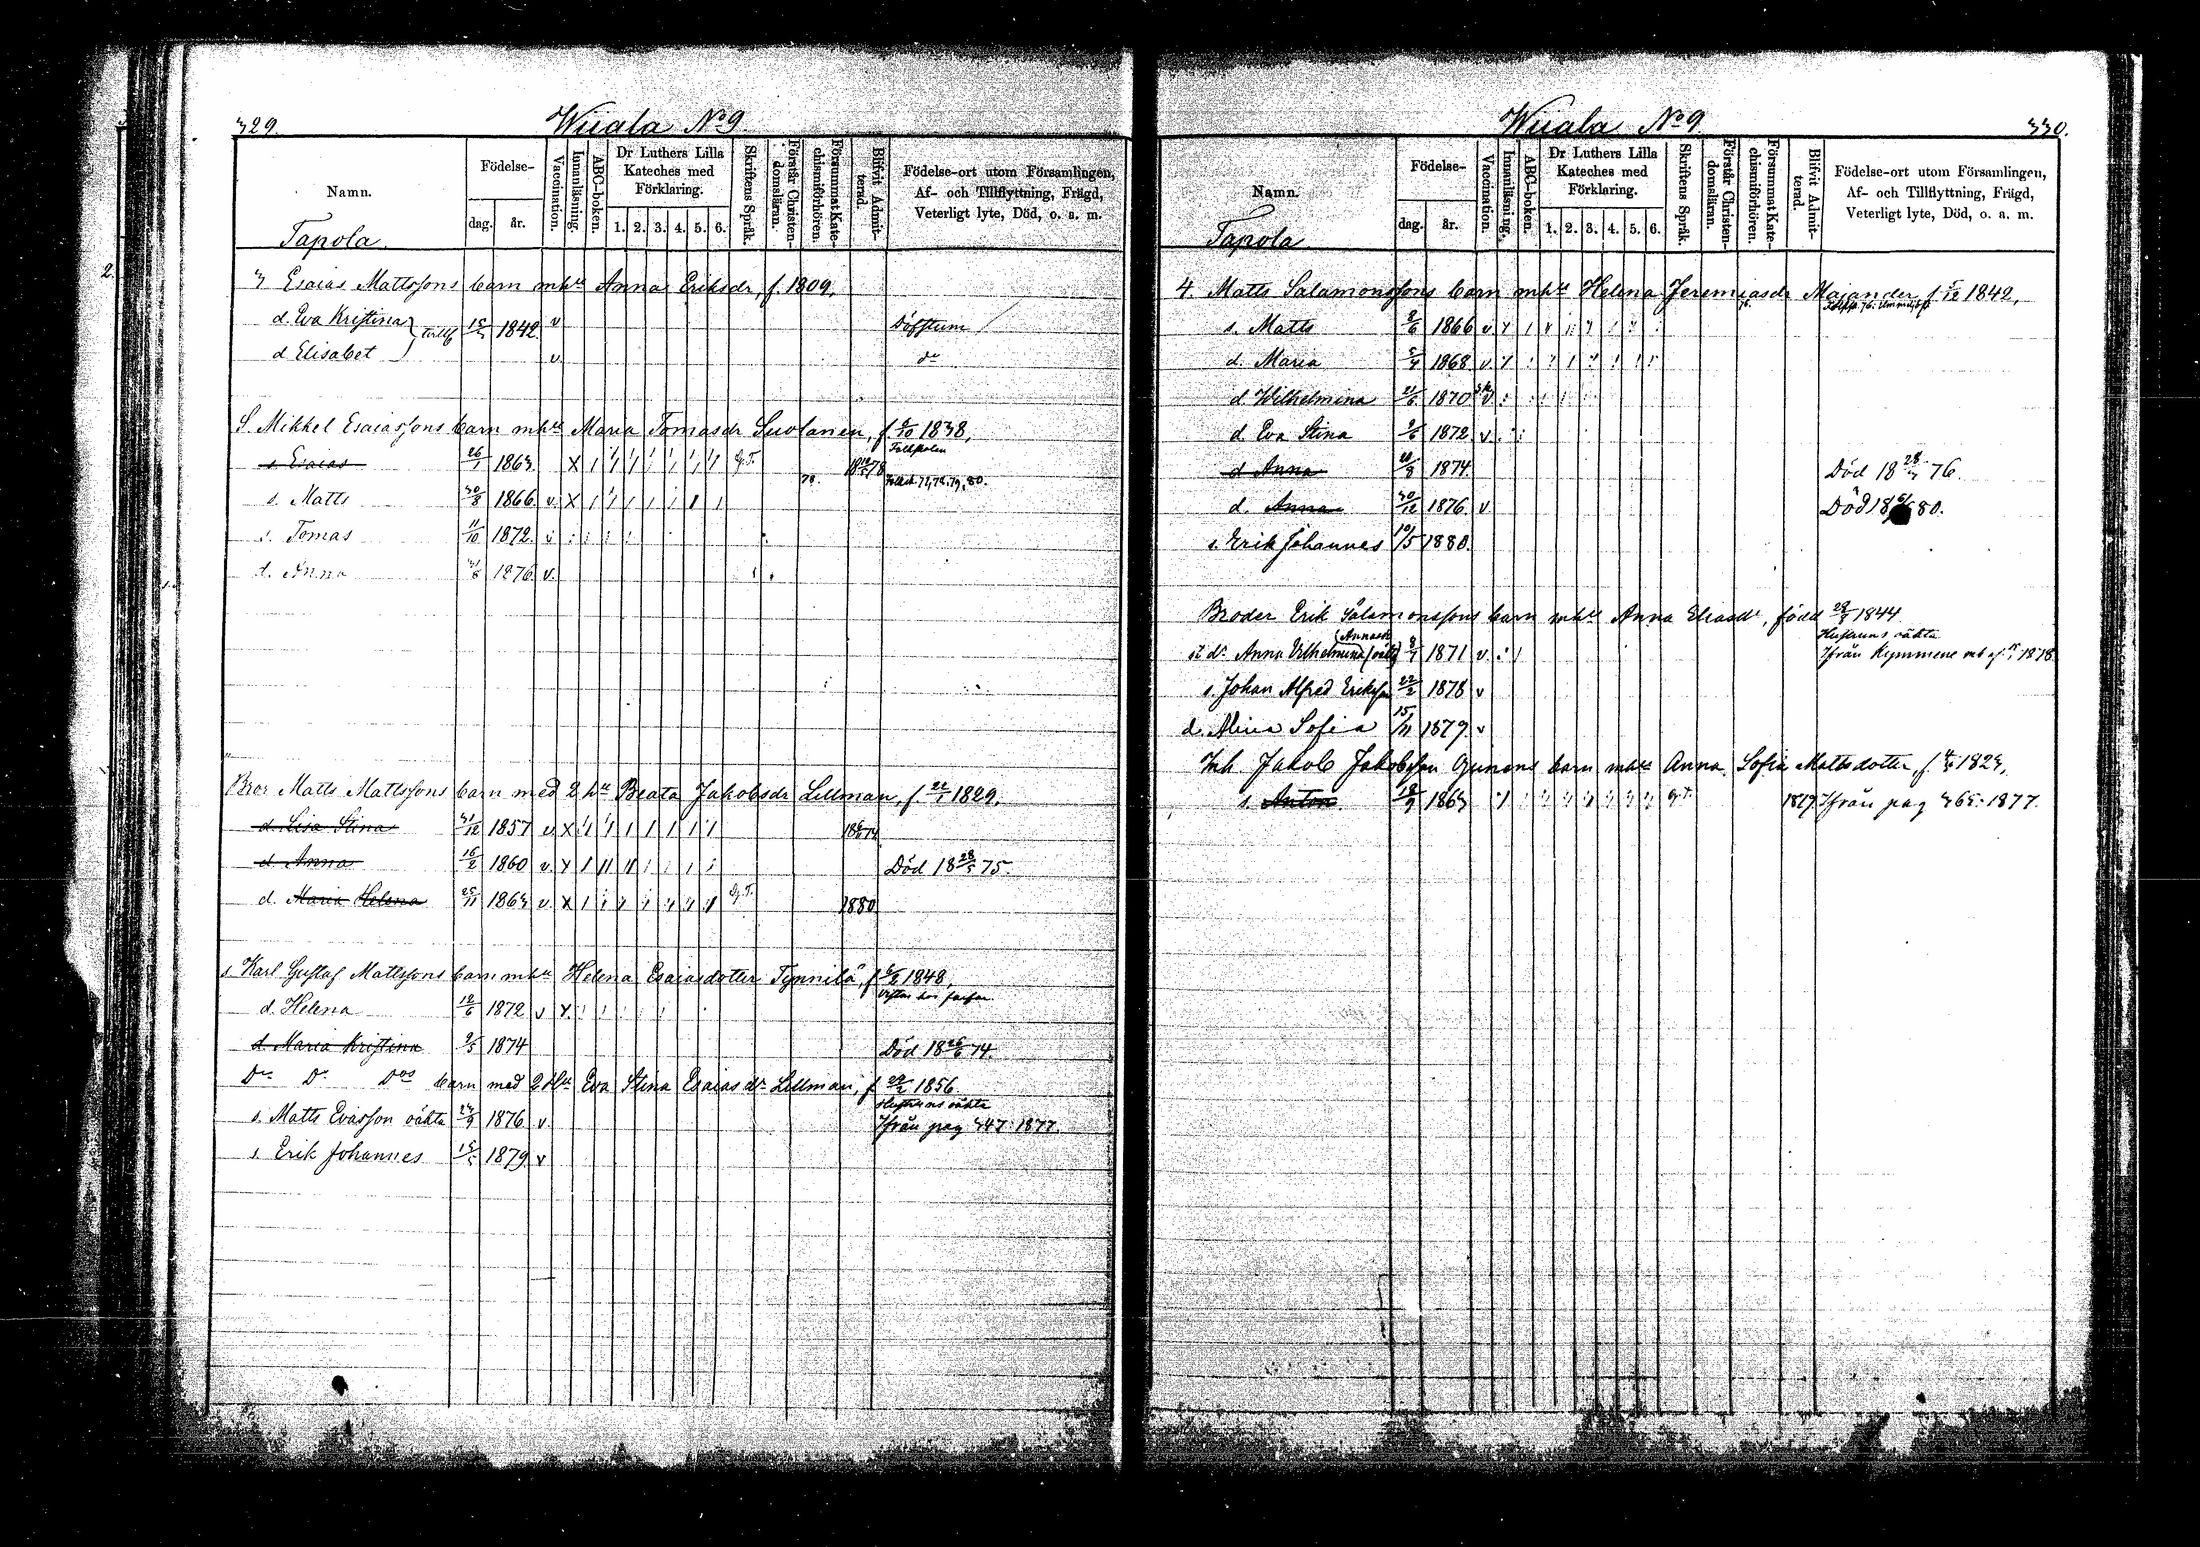 329.
Wuala No 9.
Namn.
Födelse-
dag.
år.
Vaccination.
Innanläsning.
ABC-boken.
Dr Luthers Lilla Kateches med Förklaring.
1. 2. 3. 4. 5. 6.
Skriftens Språk.
Förstår Christendomsläran.
Försummat Katechismiförhören.
Blifvit Admitterad.
Födelse-ort utom Församlingen, Af- och Tillflyttning, Frägd, Veterligt lyte, Död, o. a. m.
Tapola
2.
3 Esaias Mattssons barn mhu Anna Eriksdr, f. 1809.
d. Eva Kristina 1842. v Döfstum
d Elisabet v. do
S. Mikkel Esaiassons barn mhu Maria Tomasdr Suolanen, f. 1838,
s Esaias 26/1 1863. X G.T. 78
s. Matts 30/8 1866. v. X 78.
s. Tomas 11/10 1872. v
d. Anna 1876. v.
Bror Matts Mattssons barn med 2 hu Beata Jakobsdr Lillman, f. 22/1 1829.
d Lisa Stina 31/12 1857 v X
d Anna 16/2 1860 v. Död 18 28/5 75.
d. Maria Helena 25/11 1863 v. X G.T. 1880
s Karl Gustaf Mattssons barn mhu Helena Esaiasdotter Tynnilä, f 1848,
d. Helena 12/6 1872 v
d. Maria Kristina 9/5 1874 Död 18 26/6 74
Do Do Dos barn med 2 Hu Eva Stina Esaias dr Lillman, f 1856.
Hustruns oäkta
s. Matts Evasson oäkta 1876 v. Ifrån pag 347. 1877.
s. Erik Johannes 1879 v
Wuala No 9.
330.
Namn.
Födelse-
dag.
år.
Vaccination.
Innanläsning.
ABC-boken.
Dr Luthers Lilla Kateches med Förklaring.
1. 2. 3. 4. 5. 6.
Skriftens Språk.
Förstår Christendomsläran.
Försummat Katechismiförhören.
Blifvit Admitterad.
Födelse-ort utom Församlingen, Af- och Tillflyttning, Frägd, Veterligt lyte, Död, o. a. m.
Tapola
4. Matts Salamonssons barn mhu Helena Jeremiasdr Majander f. 1842,
s. Matts 1866 v
d. Maria 1868 v.
d. Wilhelmina 21/6 1870 v
d. Eva Stina 9/6 1872 v
d Anna 1874 Död 18 28/3 76.
d. Anna 30/12 1876 v Död 80.
s. Erik Johannes 10/5 1880.
Broder Erik Salamonssons barn mhu Anna Eliasdr, född 1844
Hustruns oäkta
Anna Vilhelmina 1871 v. Ifrån Kymmene 1878
s. Johan Alfred Eriksson 22/2 1878 v
d. Alina Sofia 15/11 1879 v
Inh. Jakob Jakobsson barn mhu Anna Sofia Mattsdotter, f. 1823,
s. Anton 18/9 1863 G.T. 1879 Ifrån pag 365. 1877.